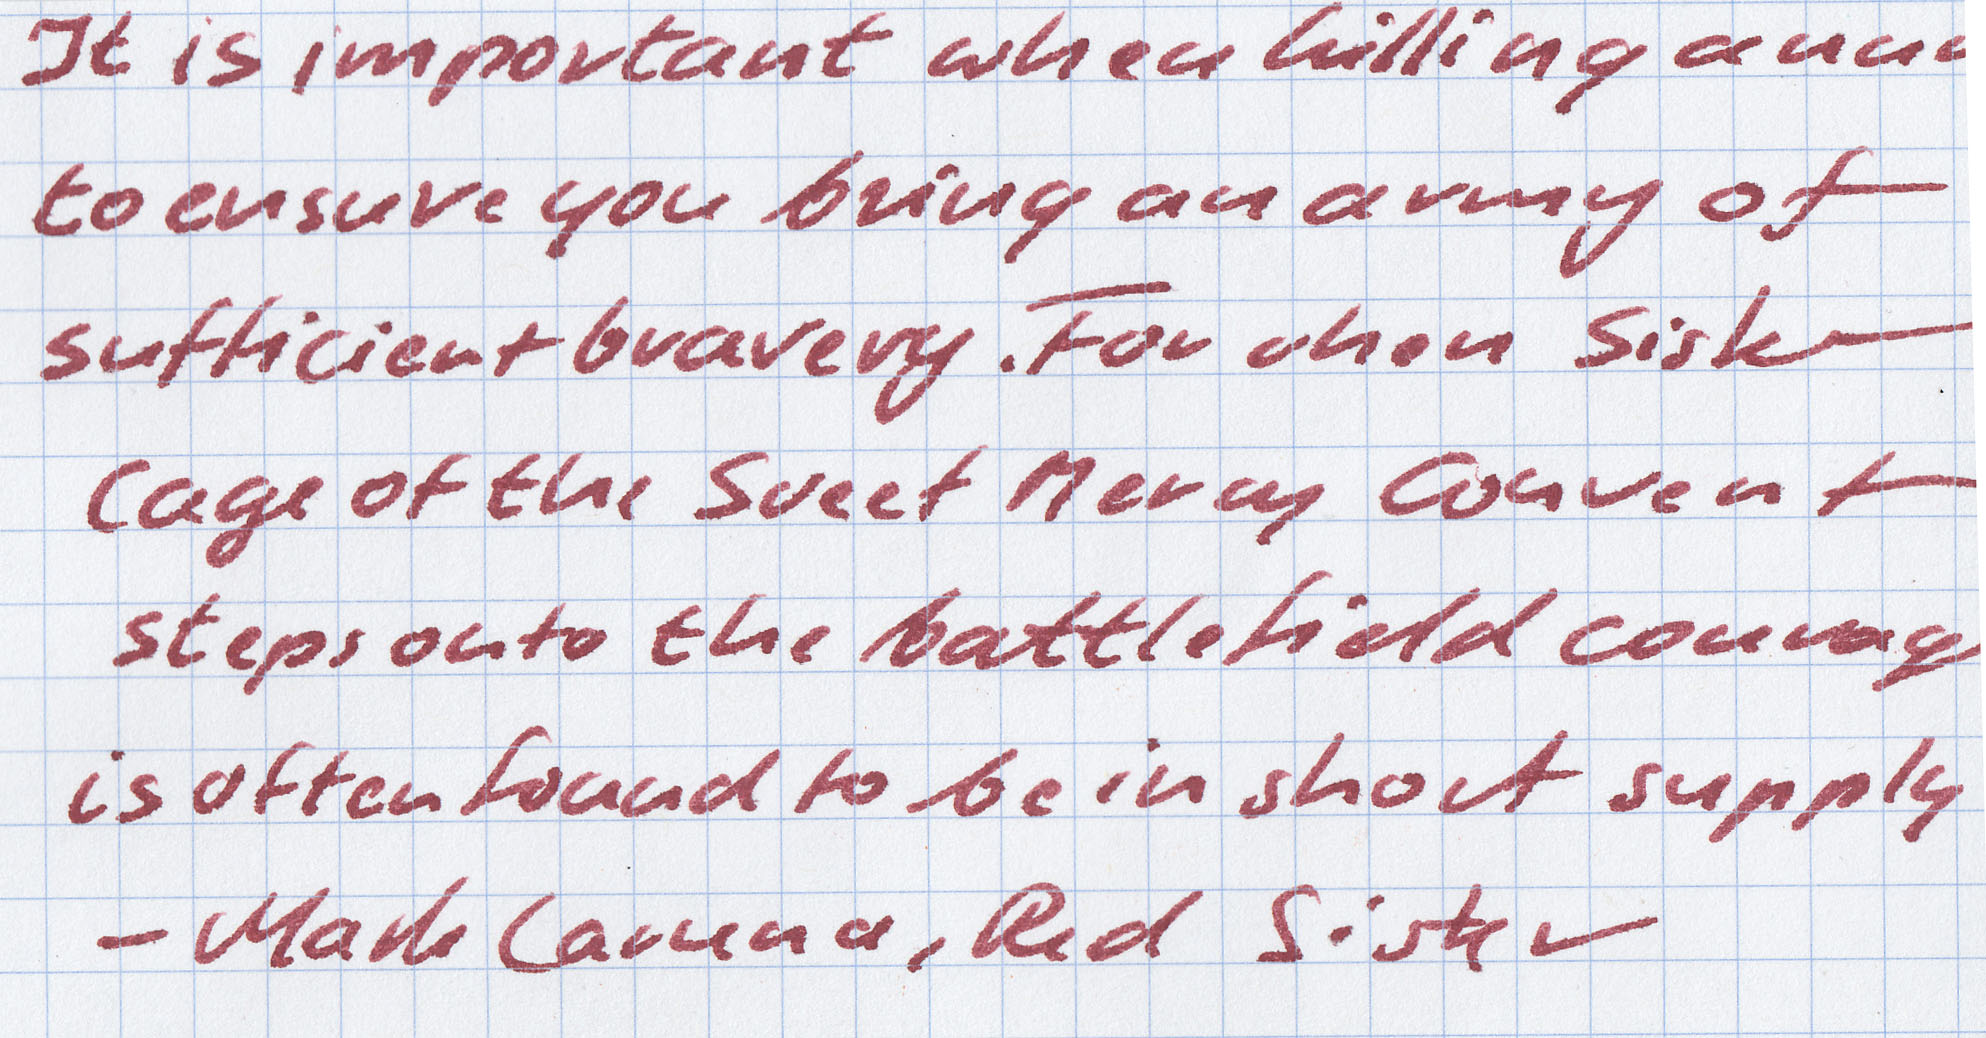 It is important when killing a nun
to ensure you bring an army of
sufficient bravery. For when Sister
Cage of the Sweet Mercy Convent
steps onto the battlefield courag
is often found to be in short supply
- Mark Lawrence, Red Sister